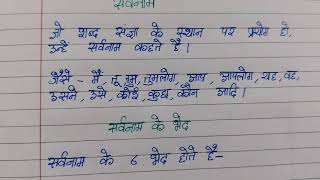 सर्वनाम
जो शब्द संज्ञा के स्थान पर प्रयोग हो,
उन्हें सर्वनाम कहते है।
जैसे - मैं, तू, तुम, तुमलोग, आप, आपलोग, यह, वह,
उसने, उसे, कोई, कुछ, कौन आदि।
सर्वनाम के भेद
सर्वनाम के 6 भेद होते हैं-